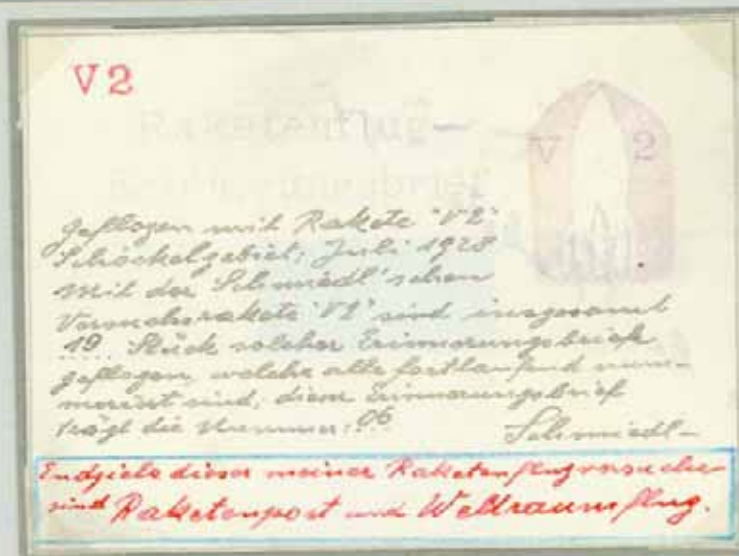 V2
V 2
Raketenflug-
geflogen mit Rakete "V2"
Schöckelgebiet, Juli 1928
Mit der Schmiedl'schen
Versuchsrakete "V2" sind insgesamt
19 Stück solcher Erinnerungsbriefe
geflogen, welche alle fortlaufend num-
meriert sind, dieser Erinnerungsbrief
trägt die Nummer: 06
Schmiedl-
Endziele dieser meiner Raketenflugversuche
sind Raketenpost und Weltraumflug.